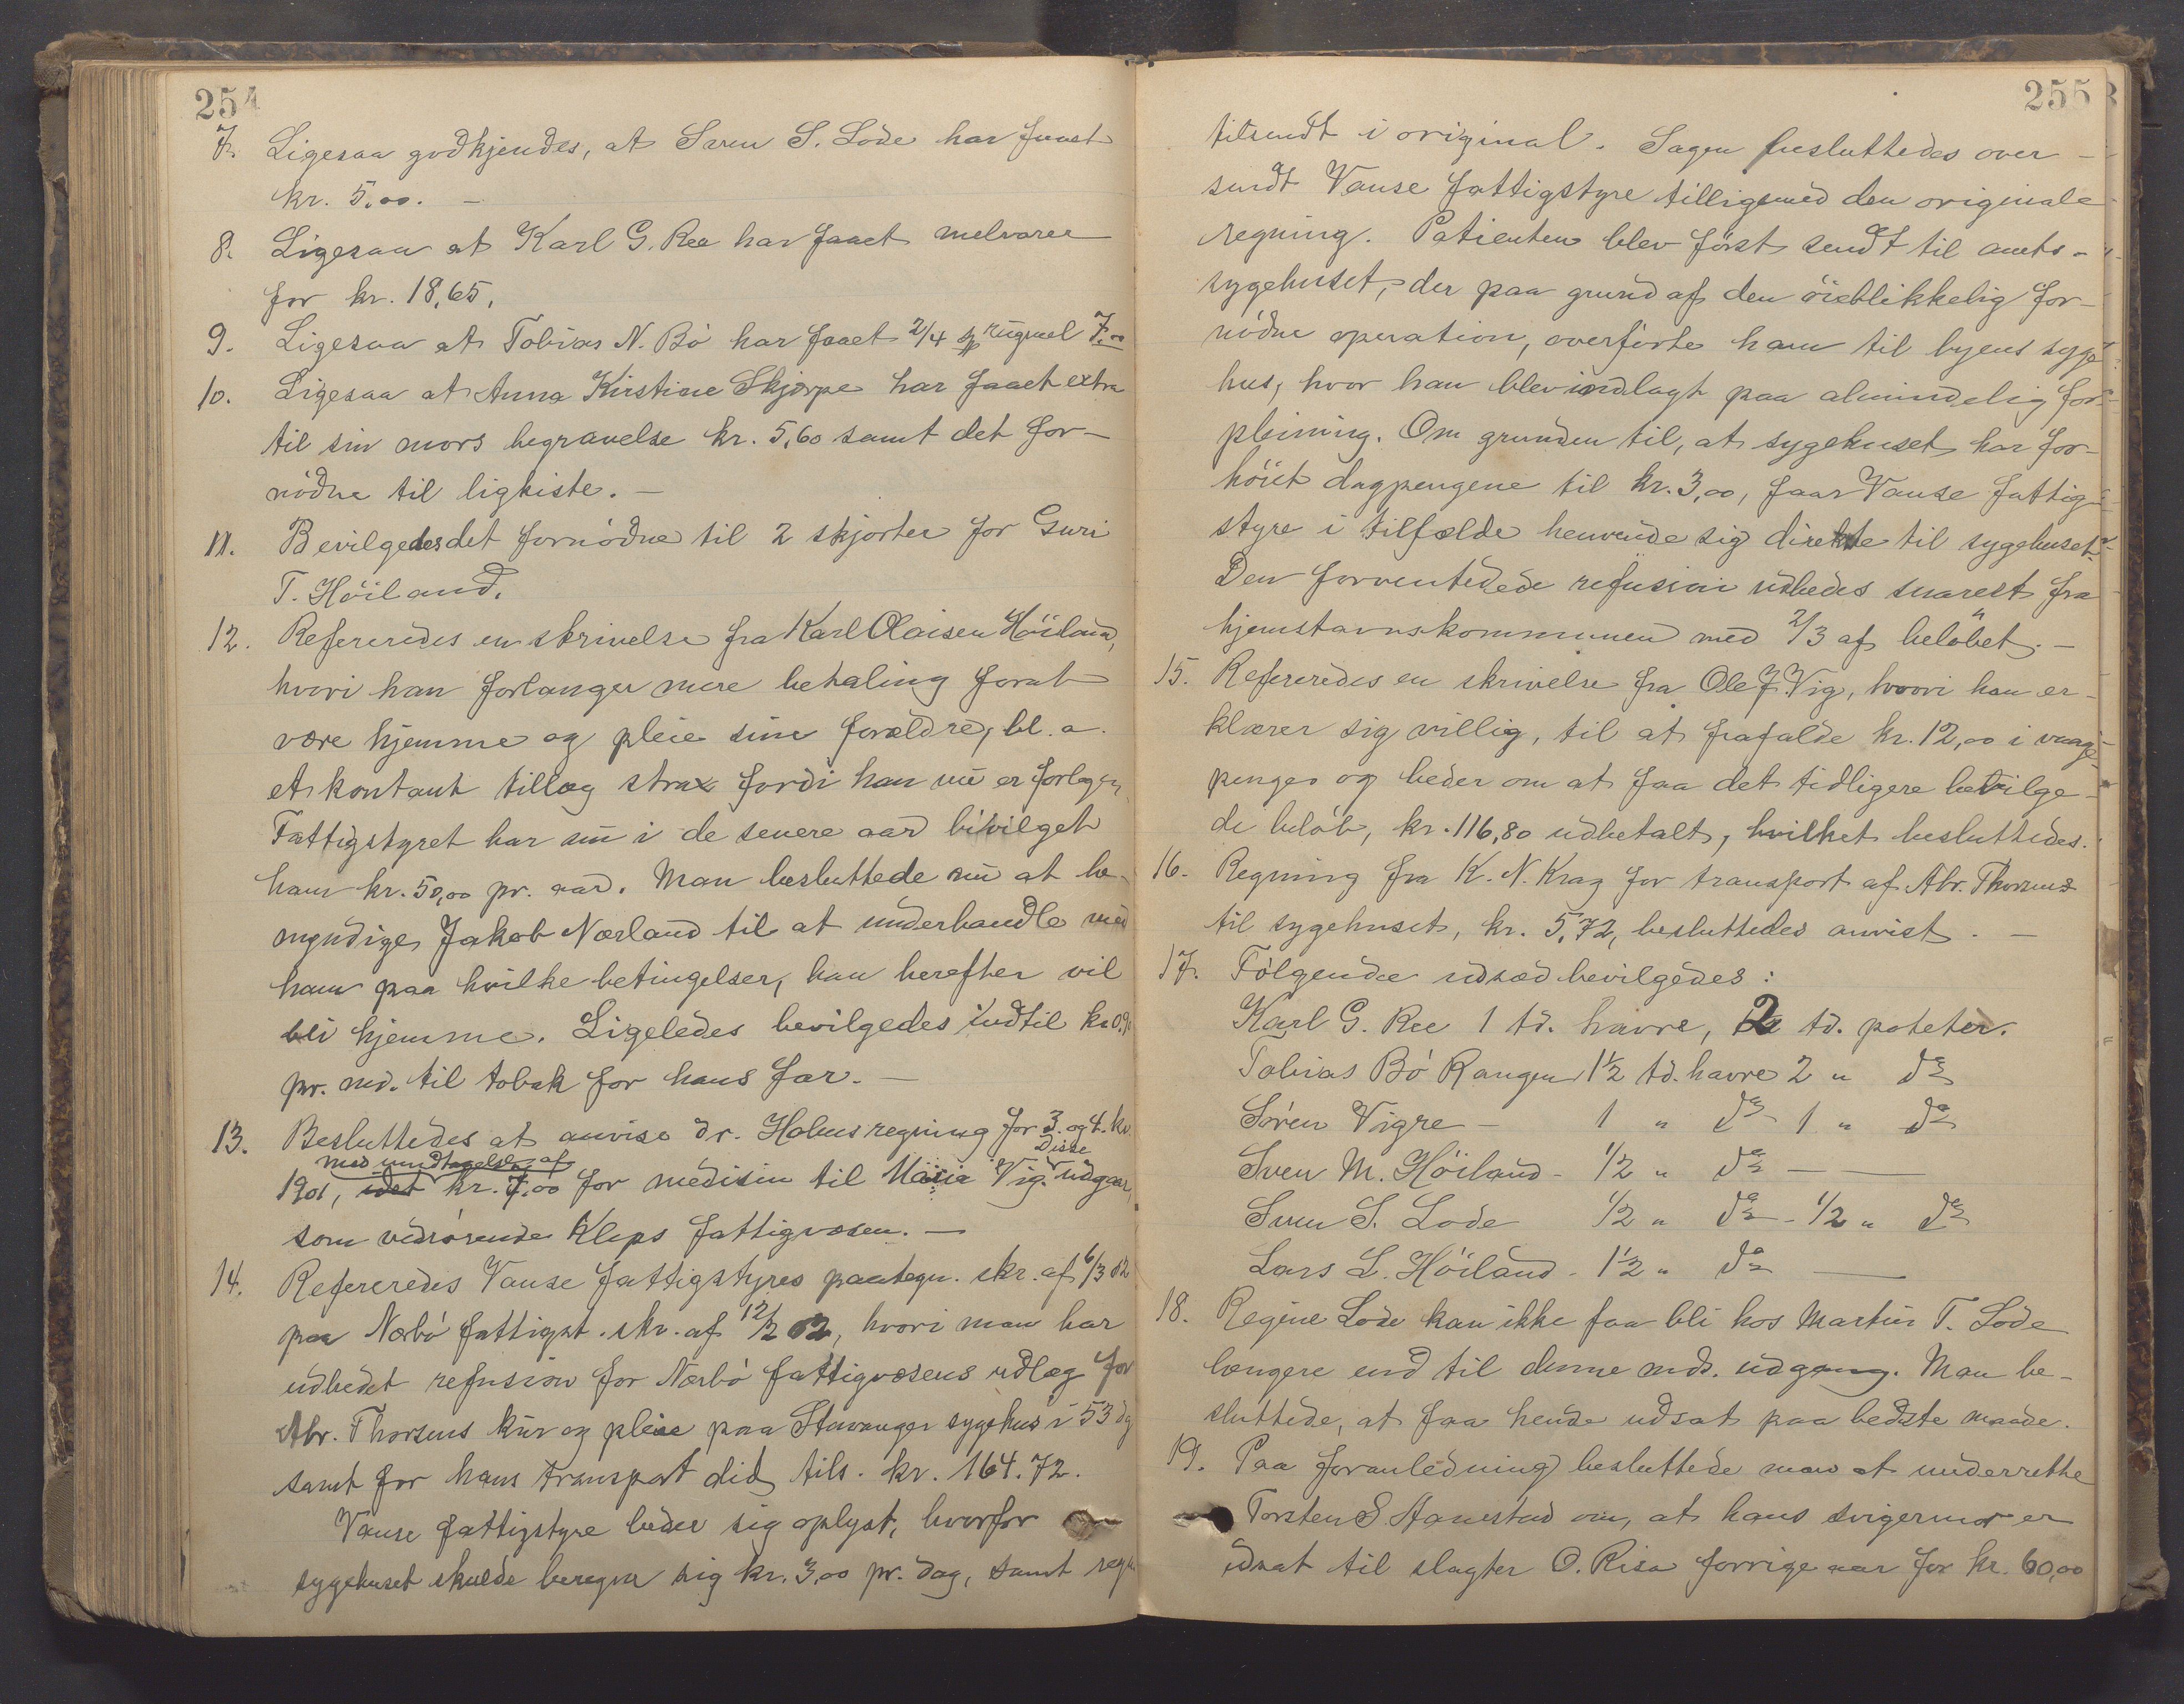 254
7. Ligesaa godkjendes, at Sven S. Lode har faaet
kr. 5,00. —
8. Ligesaa at Karl G. Ree har faaet melvarer
for kr. 18,65.
9. Ligesaa at Tobias N. Bö har faaet 2/4 sp rugmel 7,00
10. Ligesaa at Anna Kirstine Skjærpe har faaet extra
til sin mors begravelse kr. 5,60 samt det for-
nödne til ligkiste. —
11. Bevilgedes det fornödne til 2 skjorter for Guri
T. Höiland.
12. Refereredes en skrivelse fra Karl Olaisen Höiland,
hvori han forlanger mere betaling forat
være hjemme og pleie sine forældre, bl. a.
et kontant tillæg strax fordi han nu er forlegen.
Fattigstyret har nu i de senere aar bevilget
ham kr. 50,00 pr. aar. Man besluttede nu at be-
myndige Jakob Nærland til at underhandle med
ham paa hvilke betingelser, han herefter vil
bli hjemme. Ligeledes bevilgedes indtil kr. 0,90
pr. md. til tobak for hans far. —
13. Besluttedes at anvise dr. Holmsregning for 3. og 4. kv.
med undtagelse af Disse
1901, idet kr. 7,00 for medisin til Maria Vig. udgaar,
som vedrörende Kleps fattigvæsen. —
14. Refereredes Vanse fattigstyres paategn. skr. af 6/3 02
paa Nærbö fattigst. skr. af 12/2 02, hvori man har
udbedet refusion for Nærbö fattigvæsens udlæg for
Abr. Thorsens kur og pleie paa Stavanger sygehus i 53 dg
samt for hans transport did tils. kr. 164.72.
Vanse fattigstyre beder sig oplyst, hvorfor
sygehuset skulde beregne sig kr. 3,00 pr. dag, samt regn
255
tilsendt i original. Sagen besluttedes over-
sendt Vanse fattigstyre tilligemed den originale
regning. Patienten blev först sendt til amts-
sygehuset, der paa grund af den öieblikkelig for-
nödne operation, overförte ham til byens syge
hus, hvor han blev indlagt paa almindelig for-
pleining. Om grunden til, at sygehuset har for-
höiet dagpengene til kr. 3,00, faar Vanse fattig-
styre i tilfælde henvende sig direkte til sygehuset.
Den forventedede refusion udbedes snarest fra
hjemstavnskommunen med 2/3 af belöbet. —
15. Refereredes en skrivelse fra Ole J. Vig, hvori han er-
klærer sig villig, til at frafalde kr. 12,00 i vaage-
penger og beder om at faa det tidligere bevilge-
de belöb, kr. 116,80 udbetalt, hvilket besluttedes.
16. Regning fra K. N. Krag for transport af Abr. Thorsens
til sygehuset, kr. 5,72, besluttedes anvist. —
17. Fölgende udsæd bevilgedes:
Karl G. Ree 1 td. havre, 2 td. poteter.
Tobias Bö Rangen 1½ td. havre 2 " do
Sören Vigre — 1 " do - 1 " do
Sven M. Höiland - 1/2 " do — —
Sven S. Lode 1/2 " do - 1/2 " do
Lars L. Höiland - 1½ " do —
18. Regine Lode kan ikke faa bli hos Martin T. Lode
længere end til denne mds. udgang. Man be-
sluttede, at faa hende udsat paa bedste maade.
19. Paa foranledning besluttede man at underrette
Torsten S Hanestad om, at hans svigermor er
udsat til slagter O. Risa forrige aar for kr. 60,00